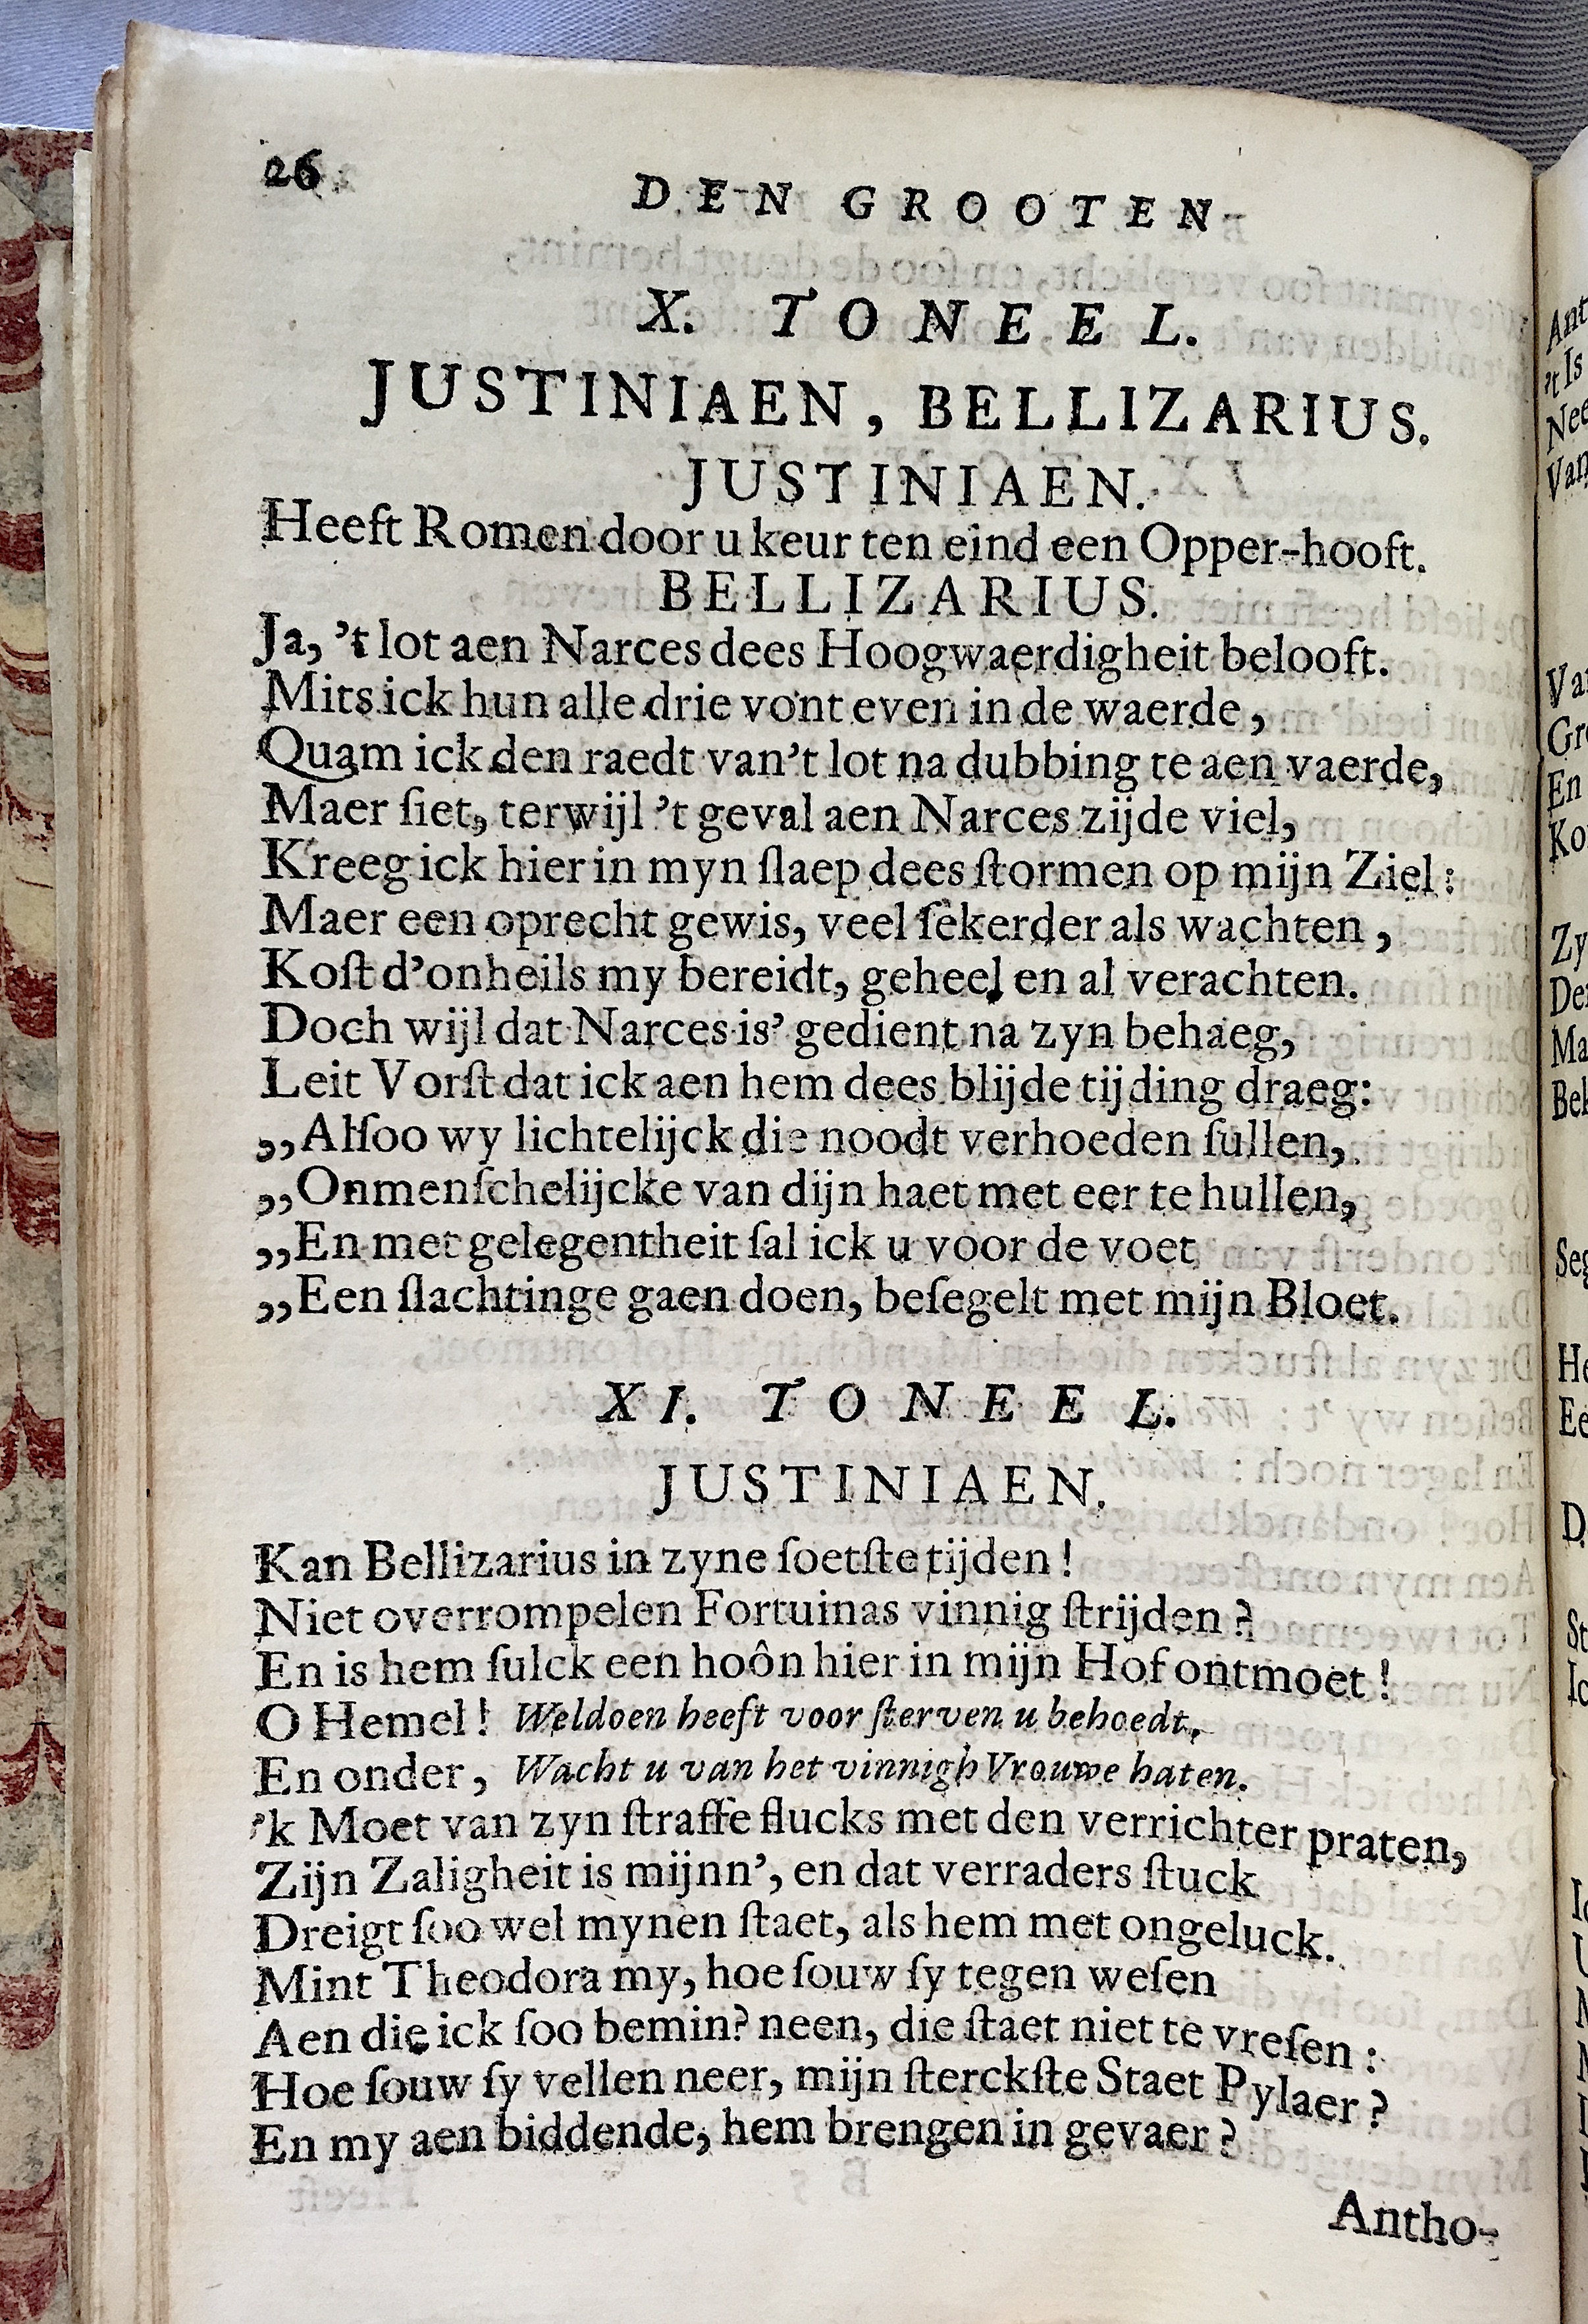 26
DEN GROOTEN
X. TONEEL.
JUSTINIAEN, BELLIZARIUS.
JUSTINIAEN.
Heeft Romen door u keur ten eind een Opper-hooft.
BELLIZARIUS.
Ja, 't lot aen Narces dees Hoogwaerdigheit belooft.
Mits ick hun alle drie vont even in de waerde,
Quam ick den raedt van't lot na dubbing te aen vaerde,
Maer ſiet, terwijl 't geval aen Narces zijde viel,
Kreeg ick hier in myn ſlaep dees ſtormen op mijn Ziel:
Maer een oprecht gewis, veel ſekerder als wachten,
Koſt d'onheils my bereidt, geheel en al verachten.
Doch wijl dat Narces is' gedient na zyn behaeg,
Leit Vorſt dat ick aen hem dees blijde tijding draeg:
,,Alſoo wy lichtelijck die noodt verhoeden ſullen,
,,Onmenſchelijcke van dijn haet met eer te hullen,
,,En met gelegentheit ſal ick u voor de voet
,,Een ſlachtinge gaen doen, beſegelt met mijn Bloet.
XI. TONEEL.
JUSTINIAEN.
Kan Bellizarius in zyne ſoetſte tijden!
Niet overrompelen Fortuinas vinnig ſtrijden?
En is hem ſulck een hoôn hier in mijn Hof ontmoet!
O Hemel! Weldoen heeft voor ſterven u behoedt,
En onder, Wacht u van het vinnigh Vrouwe haten.
'k Moet van zyn ſtraffe flucks met den verrichter praten,
Zijn Zaligheit is mijnn', en dat verraders ſtuck
Dreigt ſoo wel mynen ſtaet, als hem met ongeluck.
Mint Theodora my, hoe ſouw ſy tegen weſen
Aen die ick ſoo bemin? neen, die ſtaet niet te vreſen:
Hoe ſouw ſy vellen neer, mijn ſterckſte Staet Pylaer?
En my aen biddende, hem brengen in gevaer?
Antho-
Ant
't Is
Nee
Van
Van
Gro
En
Ko
Zy
Den
Ma
Bek
Seg
He
Ee
D
St
Ic